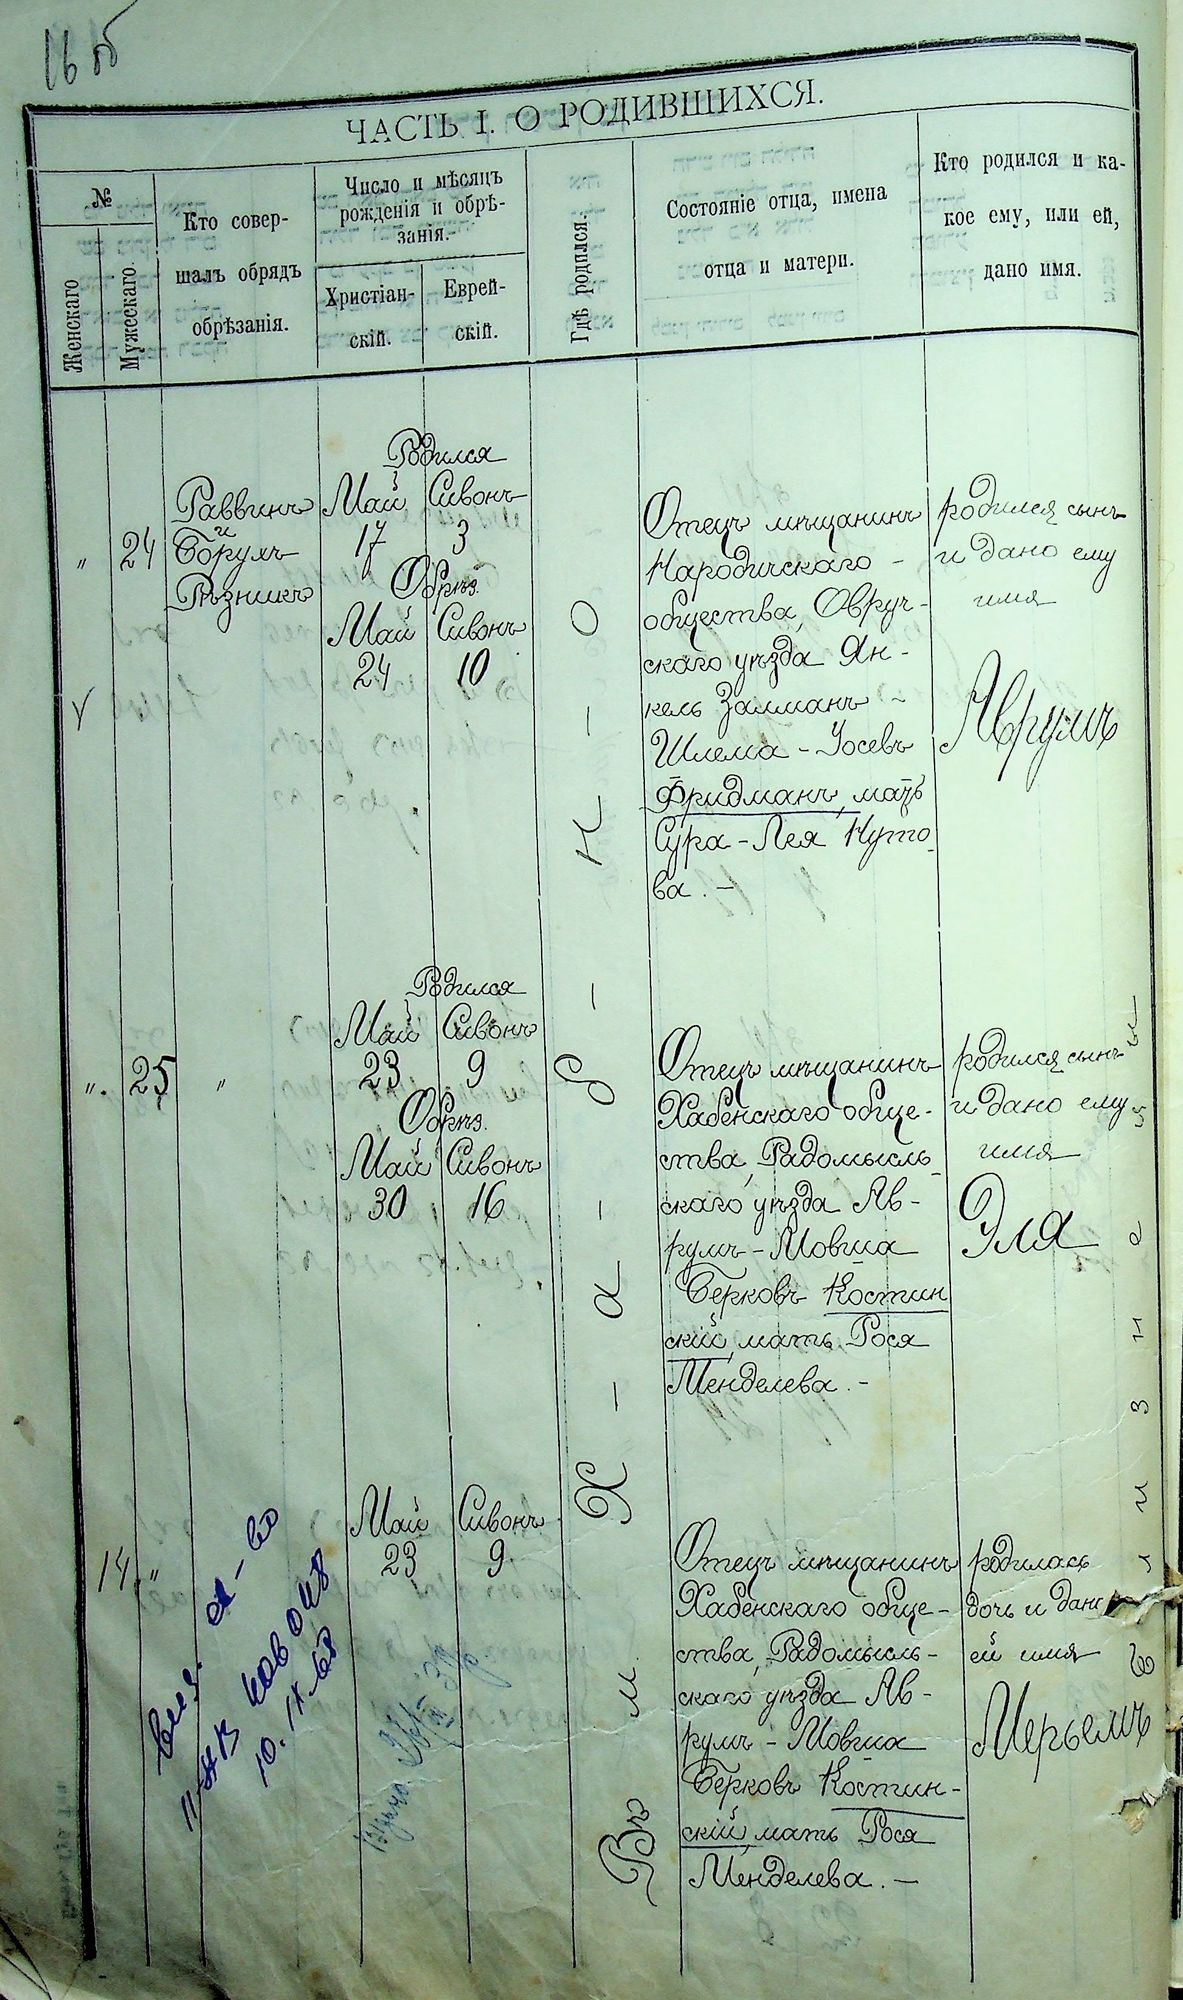 16 об
ЧАСТЬ I. О РОДИВШИХСЯ.
№
Женскаго
Мужескаго
Кто совер-
шалъ обрядъ
обрѣзанія.
Число и мѣсяцъ
рожденія и обрѣ-
занія.
Христіан-
скій.
Еврей-
скій.
Гдѣ родился.
Состояніе отца, имена
отца и матери.
Кто родился и ка-
кое ему, или ей,
дано имя.
„
24
Раввинъ
и
Борухъ
Рѣзникъ
Родился
Май Сивонъ
17 3
Обрѣз.
Май Сивонъ
24 10
Отецъ мѣщанинъ
Народичскаго -
общества, Овруч-
скаго уѣзда Ян-
кель Залманъ -
Шлема - Іосевъ
Фридманъ, мать
Сура - Лея Нуто-
ва. -
родился сынъ
и дано ему
имя
Аврумъ
V
„.
25
„
Родился
Май Сивонъ
23 9
Обрѣз.
Май Сивонъ
30 16
Отецъ мѣщанинъ
Хабенскаго обще-
ства, Радомысль-
скаго уѣзда Ав-
румъ - Мовша
Берковъ Костин
скій, мать Рося
Менделева. -
родился сынъ
и дано ему
имя
Эля
14
„
Май Сивонъ
23 9.
Отецъ мѣщанинъ
Хабенскаго обще-
ства, Радомысль-
скаго уѣзда Ав-
румъ - Мовша
Берковъ Костин-
скій, мать Рося
Менделева. -
родилась
дочь и дано
ей имя
Мерьемъ
Въ м. Х - а - б - н - о
II-ЖВ